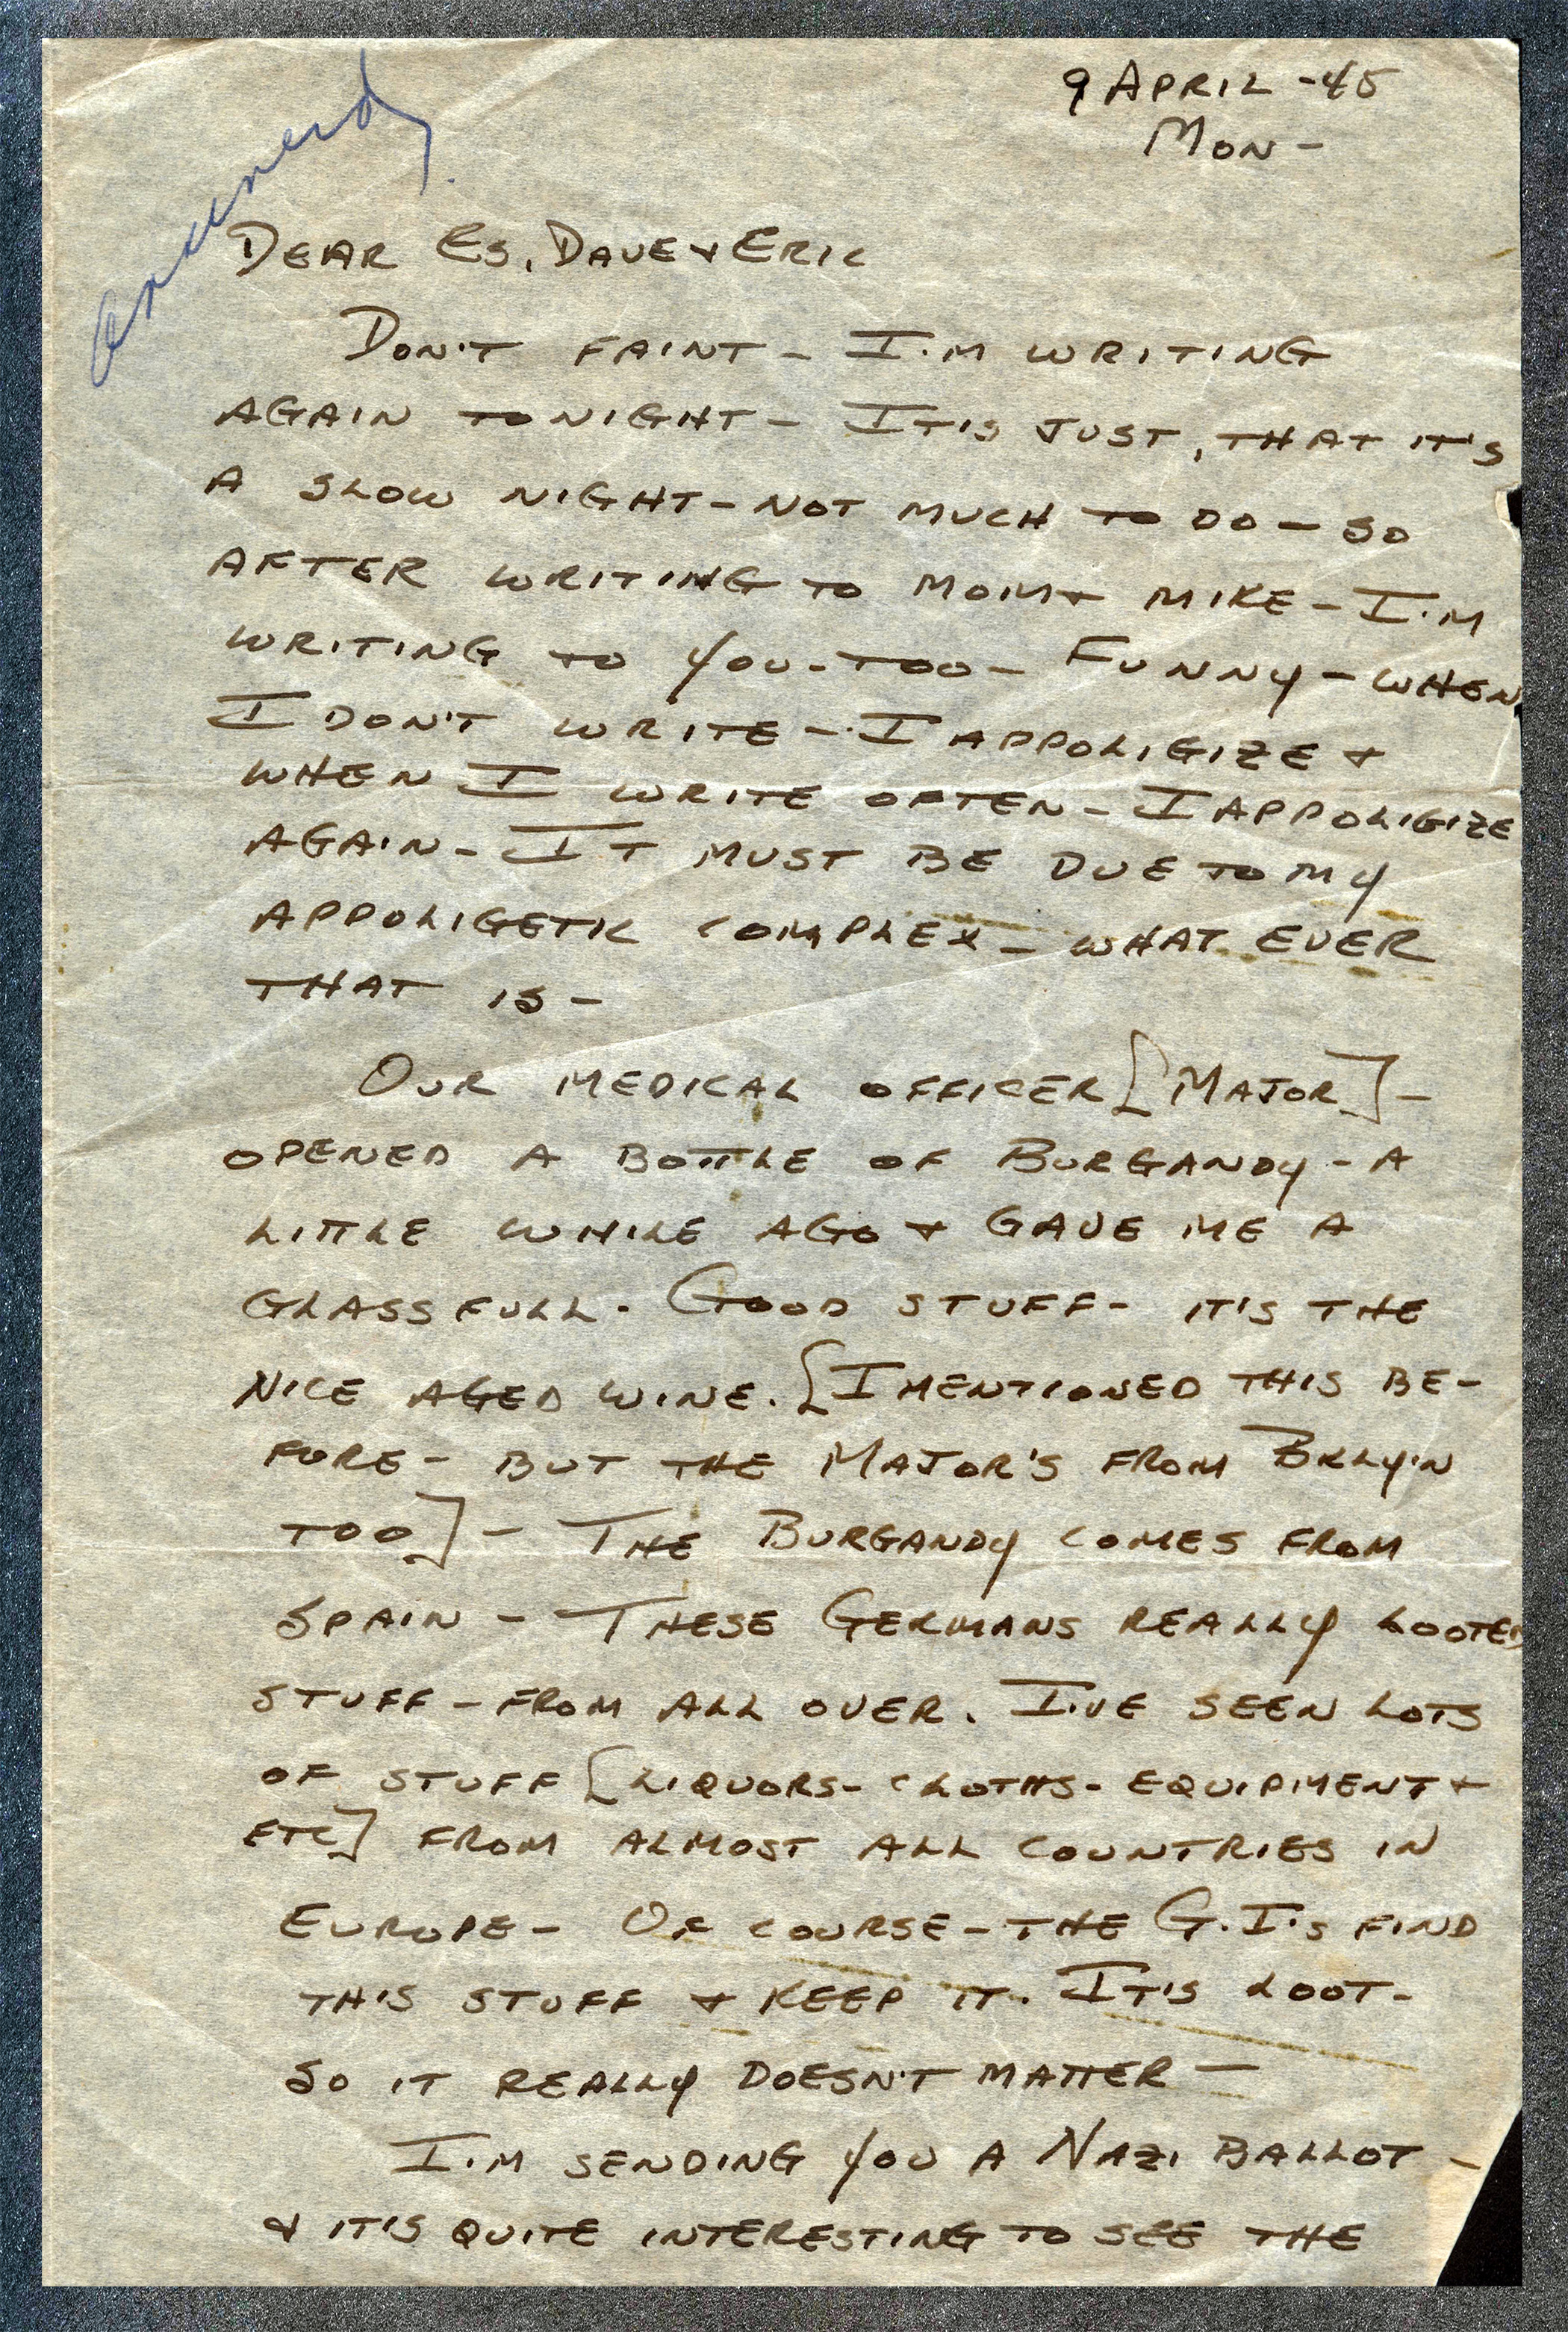 9 APRIL -45
MON -
answerd
DEAR ES, DAVE & ERIC
DON'T FAINT - I'M WRITING
AGAIN TONIGHT - IT'S JUST, THAT IT'S
A SLOW NIGHT - NOT MUCH TO DO - SO
AFTER WRITING TO MOM & MIKE - I'M
WRITING TO YOU - TOO - FUNNY - WHEN
I DON'T WRITE - I APPOLIGIZE &
WHEN I WRITE OFTEN - I APPOLIGIZE
AGAIN - IT MUST BE DUE TO MY
APPOLIGETIC COMPLEX - WHAT EVER
THAT IS -
OUR MEDICAL OFFICER [MAJOR] -
OPENED A BOTTLE OF BURGANDY - A
LITTLE WHILE AGO & GAVE ME A
GLASS FULL. GOOD STUFF - IT'S THE
NICE AGED WINE. [I MENTIONED THIS BE-
FORE - BUT THE MAJOR'S FROM BKLY'N
TOO] - THE BURGANDY COMES FROM
SPAIN - THESE GERMANS REALLY LOOTED
STUFF - FROM ALL OVER. I'VE SEEN LOTS
OF STUFF [LIQUORS - CLOTHS - EQUIPMENT &
ETC] FROM ALMOST ALL COUNTRIES IN
EUROPE - OF COURSE - THE G.I's FIND
THIS STUFF & KEEP IT. IT'S LOOT -
SO IT REALLY DOESN'T MATTER -
I'M SENDING YOU A NAZI BALLOT -
& IT'S QUITE INTERESTING TO SEE THE